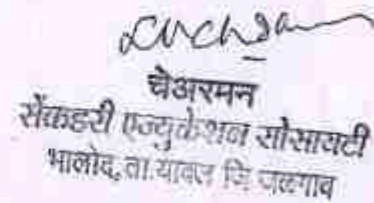 चेअरमन
सेंकडरी एज्युकेशन सोसायटी
भालोद, ता.यावल जि जळगाव